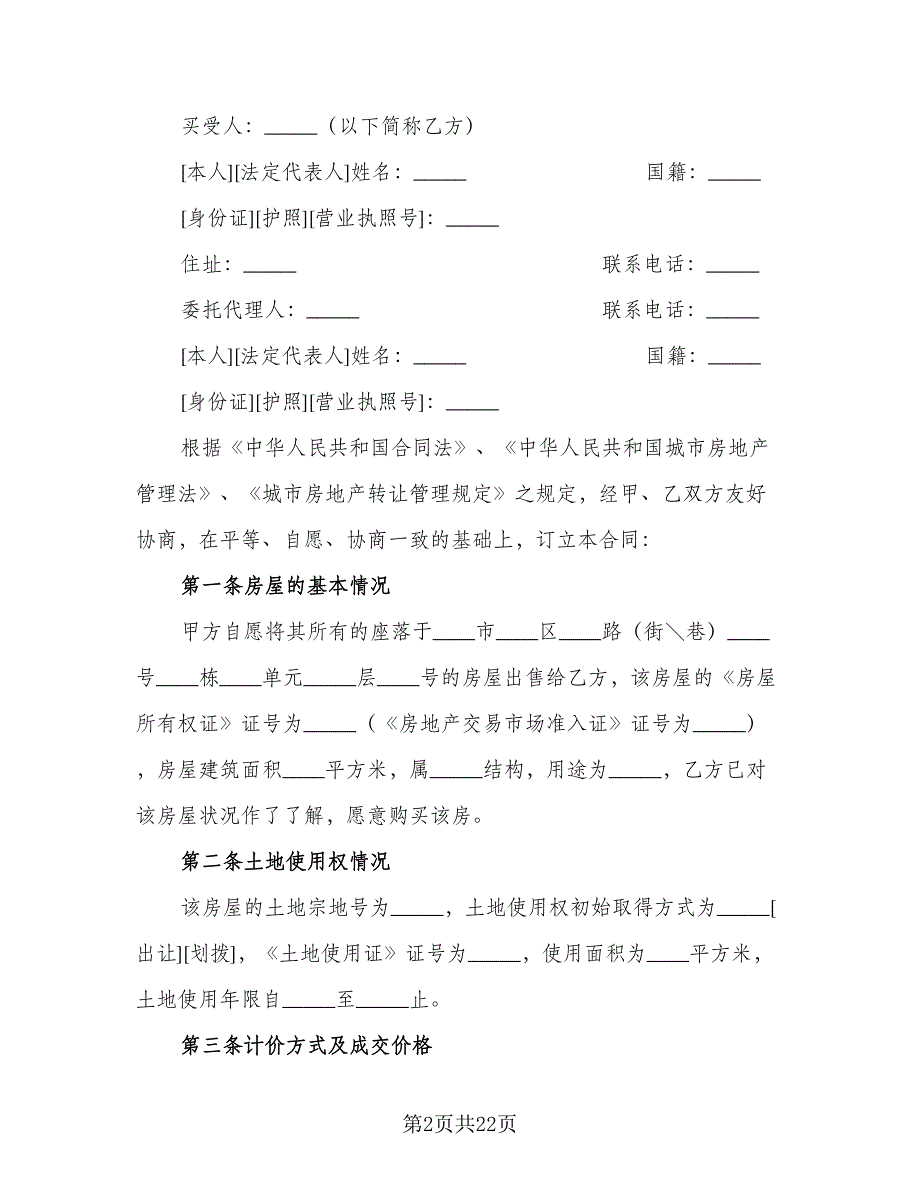 买受人：_____（以下简称乙方）
[本人][法定代表人]姓名：_____ 国籍：_____
[身份证][护照][营业执照号]：_____
住址：_____ 联系电话：_____
委托代理人：_____ 联系电话：_____
[本人][法定代表人]姓名：_____ 国籍：_____
[身份证][护照][营业执照号]：_____
根据《中华人民共和国合同法》、《中华人民共和国城市房地产
管理法》、《城市房地产转让管理规定》之规定，经甲、乙双方友好
协商，在平等、自愿、协商一致的基础上，订立本合同：
第一条房屋的基本情况
甲方自愿将其所有的座落于____市____区____路（街＼巷）____
号____栋____单元_____层____号的房屋出售给乙方，该房屋的《房屋
所有权证》证号为_____（《房地产交易市场准入证》证号为_____）
，房屋建筑面积____平方米，属_____结构，用途为_____，乙方已对
该房屋状况作了了解，愿意购买该房。
第二条土地使用权情况
该房屋的土地宗地号为_____，土地使用权初始取得方式为_____[
出让][划拨]，《土地使用证》证号为_____，使用面积为____平方米，
土地使用年限自_____至_____止。
第三条计价方式及成交价格
第2页共22页